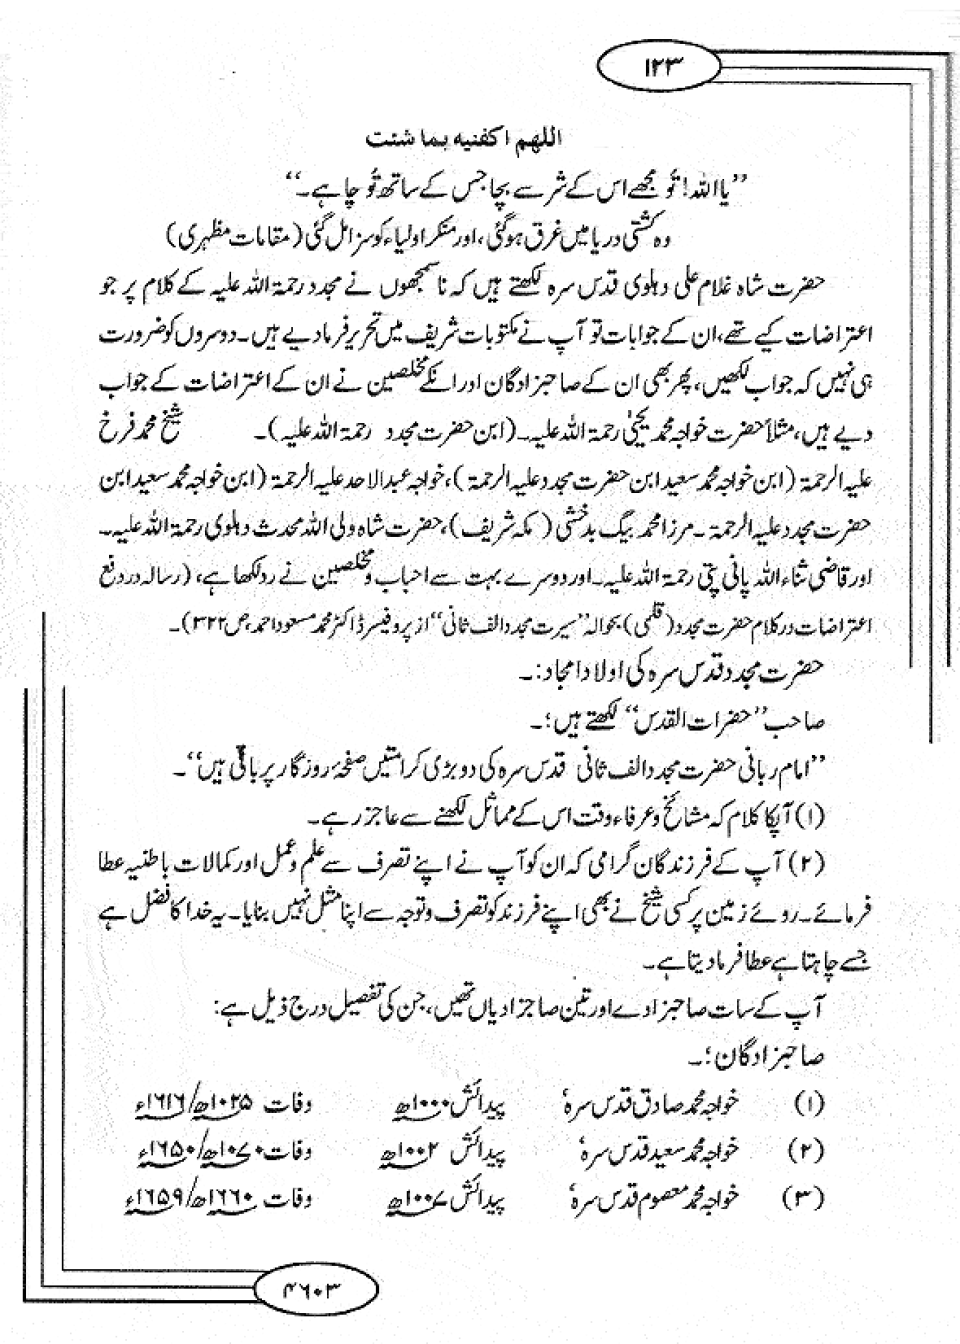 ۱۲۳
اللهم اكفنيه بما شئت
”یا اللہ! تُو مجھے اس کے شر سے بچا جس کے ساتھ تُو چاہے۔“
وہ کشتی دریا میں غرق ہو گئی، اور منکر اولیاء کو سزا مل گئی (مقامات مظہری)
حضرت شاہ غلام علی دہلوی قدس سرہ لکھتے ہیں کہ ناسمجھوں نے مجدد رحمۃ اللہ علیہ کے کلام پر جو
اعتراضات کیے تھے، ان کے جوابات تو آپ نے مکتوبات شریف میں تحریر فرما دیے ہیں۔ دوسروں کو ضرورت
ہی نہیں کہ جواب لکھیں، پھر بھی ان کے صاحبزادگان اور انکے مخلصین نے ان کے اعتراضات کے جواب
دیے ہیں، مثلاً حضرت خواجہ محمد یحییٰ رحمۃ اللہ علیہ۔ (ابن حضرت مجدد رحمۃ اللہ علیہ)۔ شیخ محمد فرخ
علیہ الرحمۃ (ابن خواجہ محمد سعید ابن حضرت مجدد علیہ الرحمۃ)، خواجہ عبد الاحد علیہ الرحمۃ (ابن خواجہ محمد سعید ابن
حضرت مجدد علیہ الرحمۃ۔ مرزا محمد بیگ بدخشی (مکہ شریف)، حضرت شاہ ولی اللہ محدث دہلوی رحمۃ اللہ علیہ۔
اور قاضی ثناء اللہ پانی پتی رحمۃ اللہ علیہ۔ اور دوسرے بہت سے احباب و مخلصین نے رد لکھا ہے، (رسالہ در دفع
اعتراضات در کلام حضرت مجدد (قلمی) بحوالہ ”سیرت مجدد الف ثانی“ از پروفیسر ڈاکٹر محمد مسعود احمد، ص ۳۲۲)۔
حضرت مجدد قدس سرہ کی اولاد امجاد:۔
صاحب ”حضرات القدس“ لکھتے ہیں؛۔
”امام ربانی حضرت مجدد الف ثانی قدس سرہ کی دو بڑی کرامتیں صفحۂ روزگار پر باقی ہیں“۔
(۱) آپکا کلام کہ مشائخ و عرفاء وقت اس کے مماثل لکھنے سے عاجز رہے۔
(۲) آپ کے فرزندگان گرامی کہ ان کو آپ نے اپنے تصرف سے علم و عمل اور کمالات باطنیہ عطا
فرمائے۔ روئے زمین پر کسی شیخ نے بھی اپنے فرزند کو تصرف و توجہ سے اپنا مثل نہیں بنایا۔ یہ خدا کا فضل ہے
جسے چاہتا ہے عطا فرما دیتا ہے۔
آپ کے سات صاحبزادے اور تین صاجزادیاں تھیں، جن کی تفصیل درج ذیل ہے:
صاحبزادگان؛۔
(۱) خواجہ محمد صادق قدس سرہٗ پیدائش ۱۰۰۰ھ وفات ۱۰۲۵ھ/۱۶۱۶ء
(۲) خواجہ محمد سعید قدس سرہٗ پیدائش ۱۰۰۲ھ وفات ۱۰۷۰ھ/۱۶۵۰ء
(۳) خواجہ محمد معصوم قدس سرہٗ پیدائش ۱۰۰۷ھ وفات ۱۶۶۰ھ/۱۶۵۹ء
۴۶۰۳